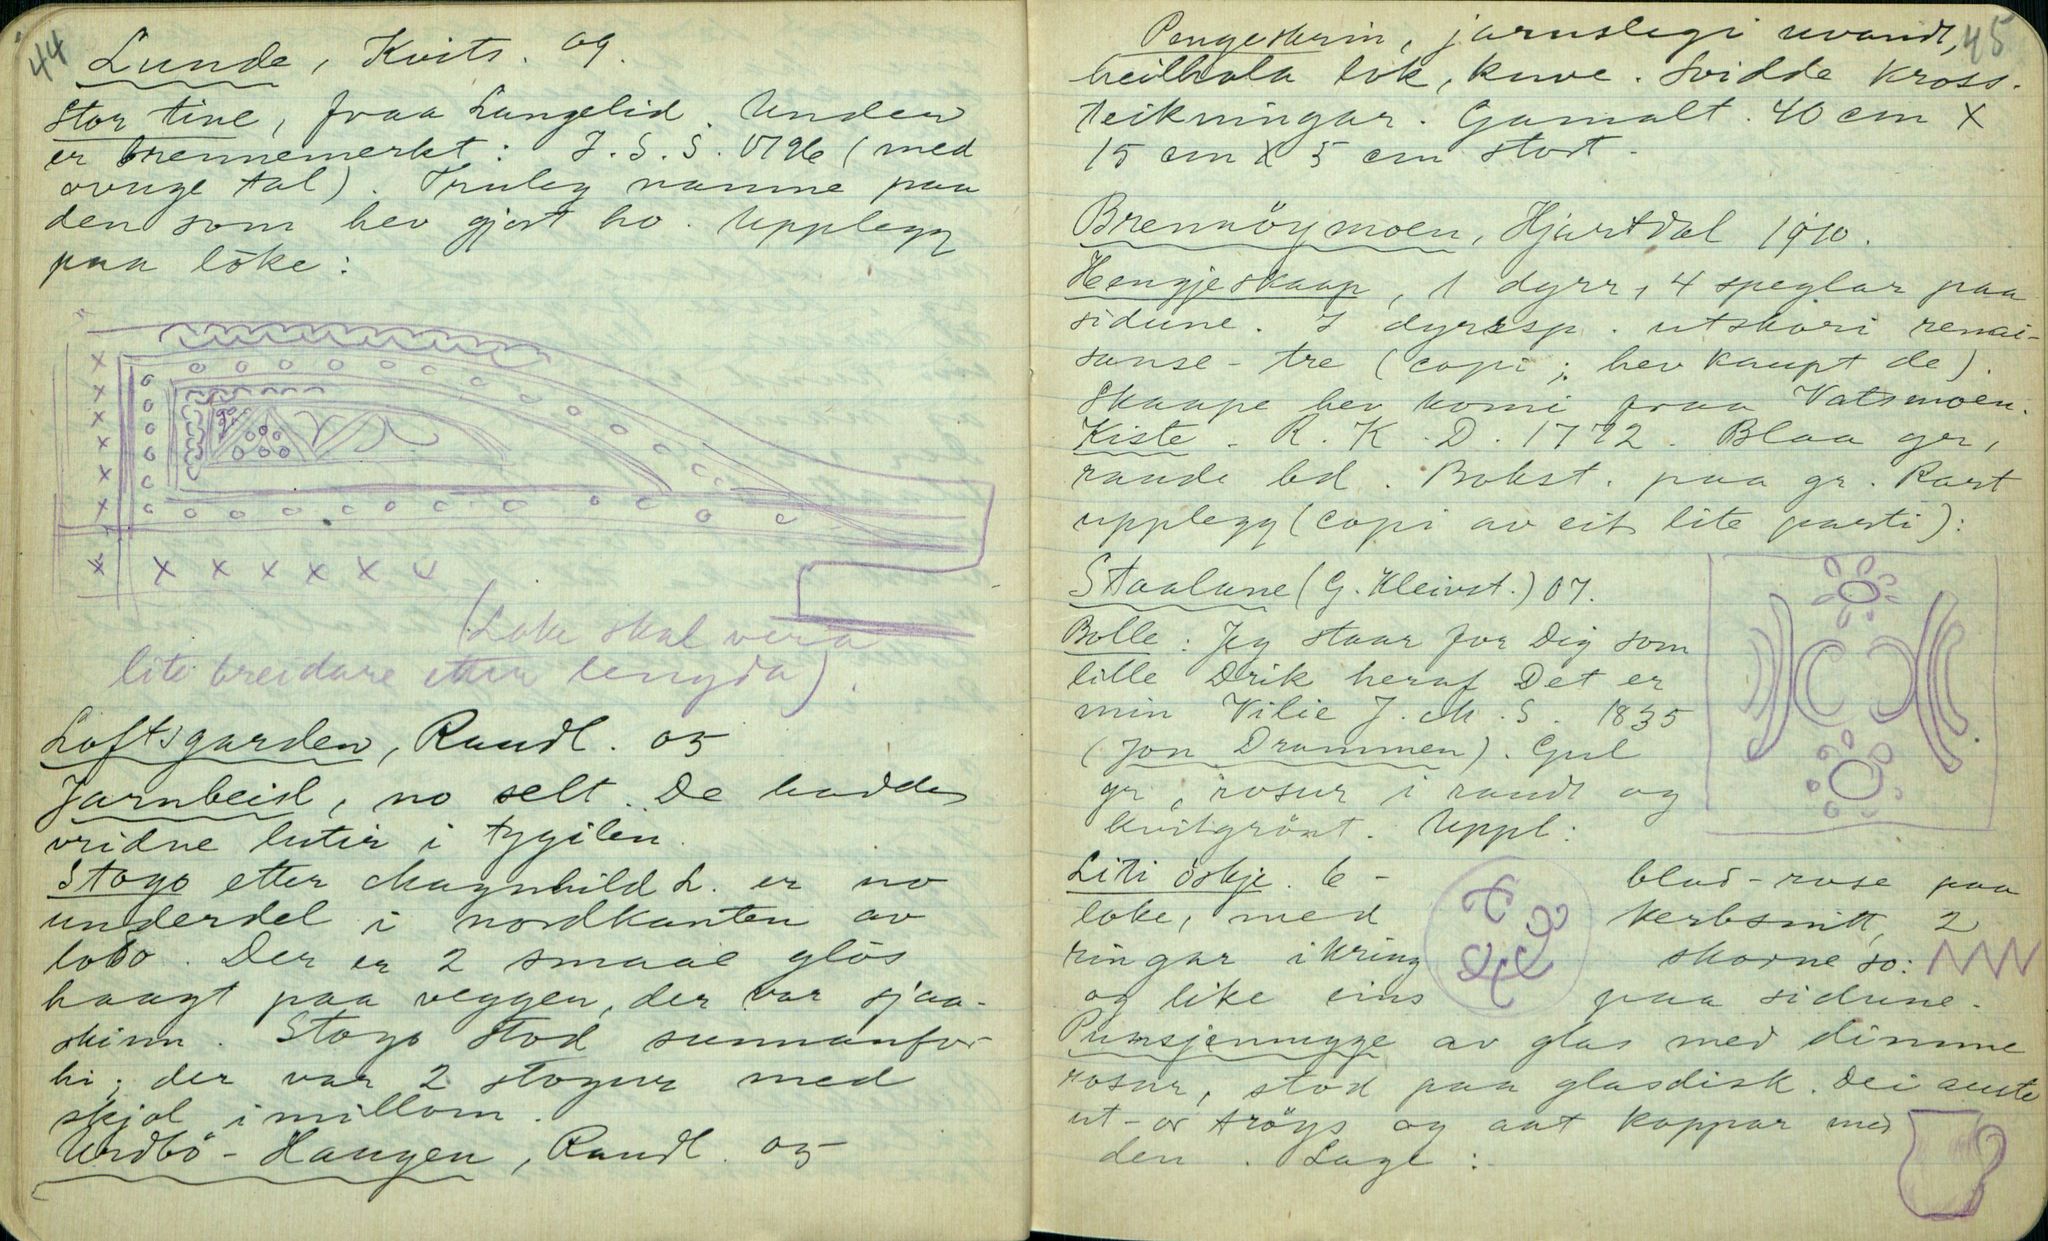 44
Lunde, Kvits. 09.
Stor tine, fraa Langelid. Under
er brennemerkt: J. S. S. 1796 (med
ovuge tal). Truleg namne paa
den som hev gjort ho. Upplegg
paa lòke:
(Loke skal vera
lite breidare etter lengda).
Loftsgarden, Raudl. 05
Jarnbeisl, no selt. De hadde
vridne luter i tygilen.
Stogo etter Magnhild L. er no
underdel i nordkanten av
. Der er 2 smaae glòs
haagt paa veggen, der var sjaa-
skinn. Stogo stod sunnanfor
hi; der var 2 stogur med
skjol imillom.
Urdbö-Haugen, Raudl. 05
45
Pengeskrin, jarnslegi uvandt,
heilhola lok, kuve. Svidde kross.
teikningar. Gamalt. 40 cm X
15 cm X 5 cm stort.
Brennöymoen, Hjartdal 1910.
Hengjeskaap, 1 dyrr, 4 speglar paa
sidune. I dyrrsp. utskori renai-
sanse-tre (copi; hev kaupt de).
Skaape hev komi fraa Vatsmoen.
Kiste. R. K. D. 1772. Blaa gr,
raude bd. Bokst. paa gr. Rart
upplegg (copi av eit lite parti):
Staalane (G. Kleivst.) 07.
Bolle: Jeg staar for Dig som
lille Drik heraf Det er
min Vilie J. M. S. 1835
(Jon Drammen). Gul
gr, rosur i raudt og
kvitgrönt. Uppl:
Liti öskje. 6- blad-rose paa
loke, med Kerbsnitt, 2
ringar ikring skorne so:
og like eins paa sidune.
Punsjemugge av glas med dimme
rosur, stod paa glasdisk. Dei auste
ut-or tröys og aat koppar med
den. Lage: